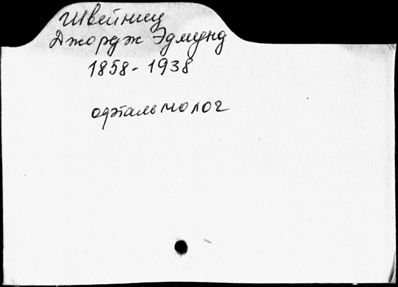 Швейниц
Джордж Эдмунд
1858-1938
офтальмолог